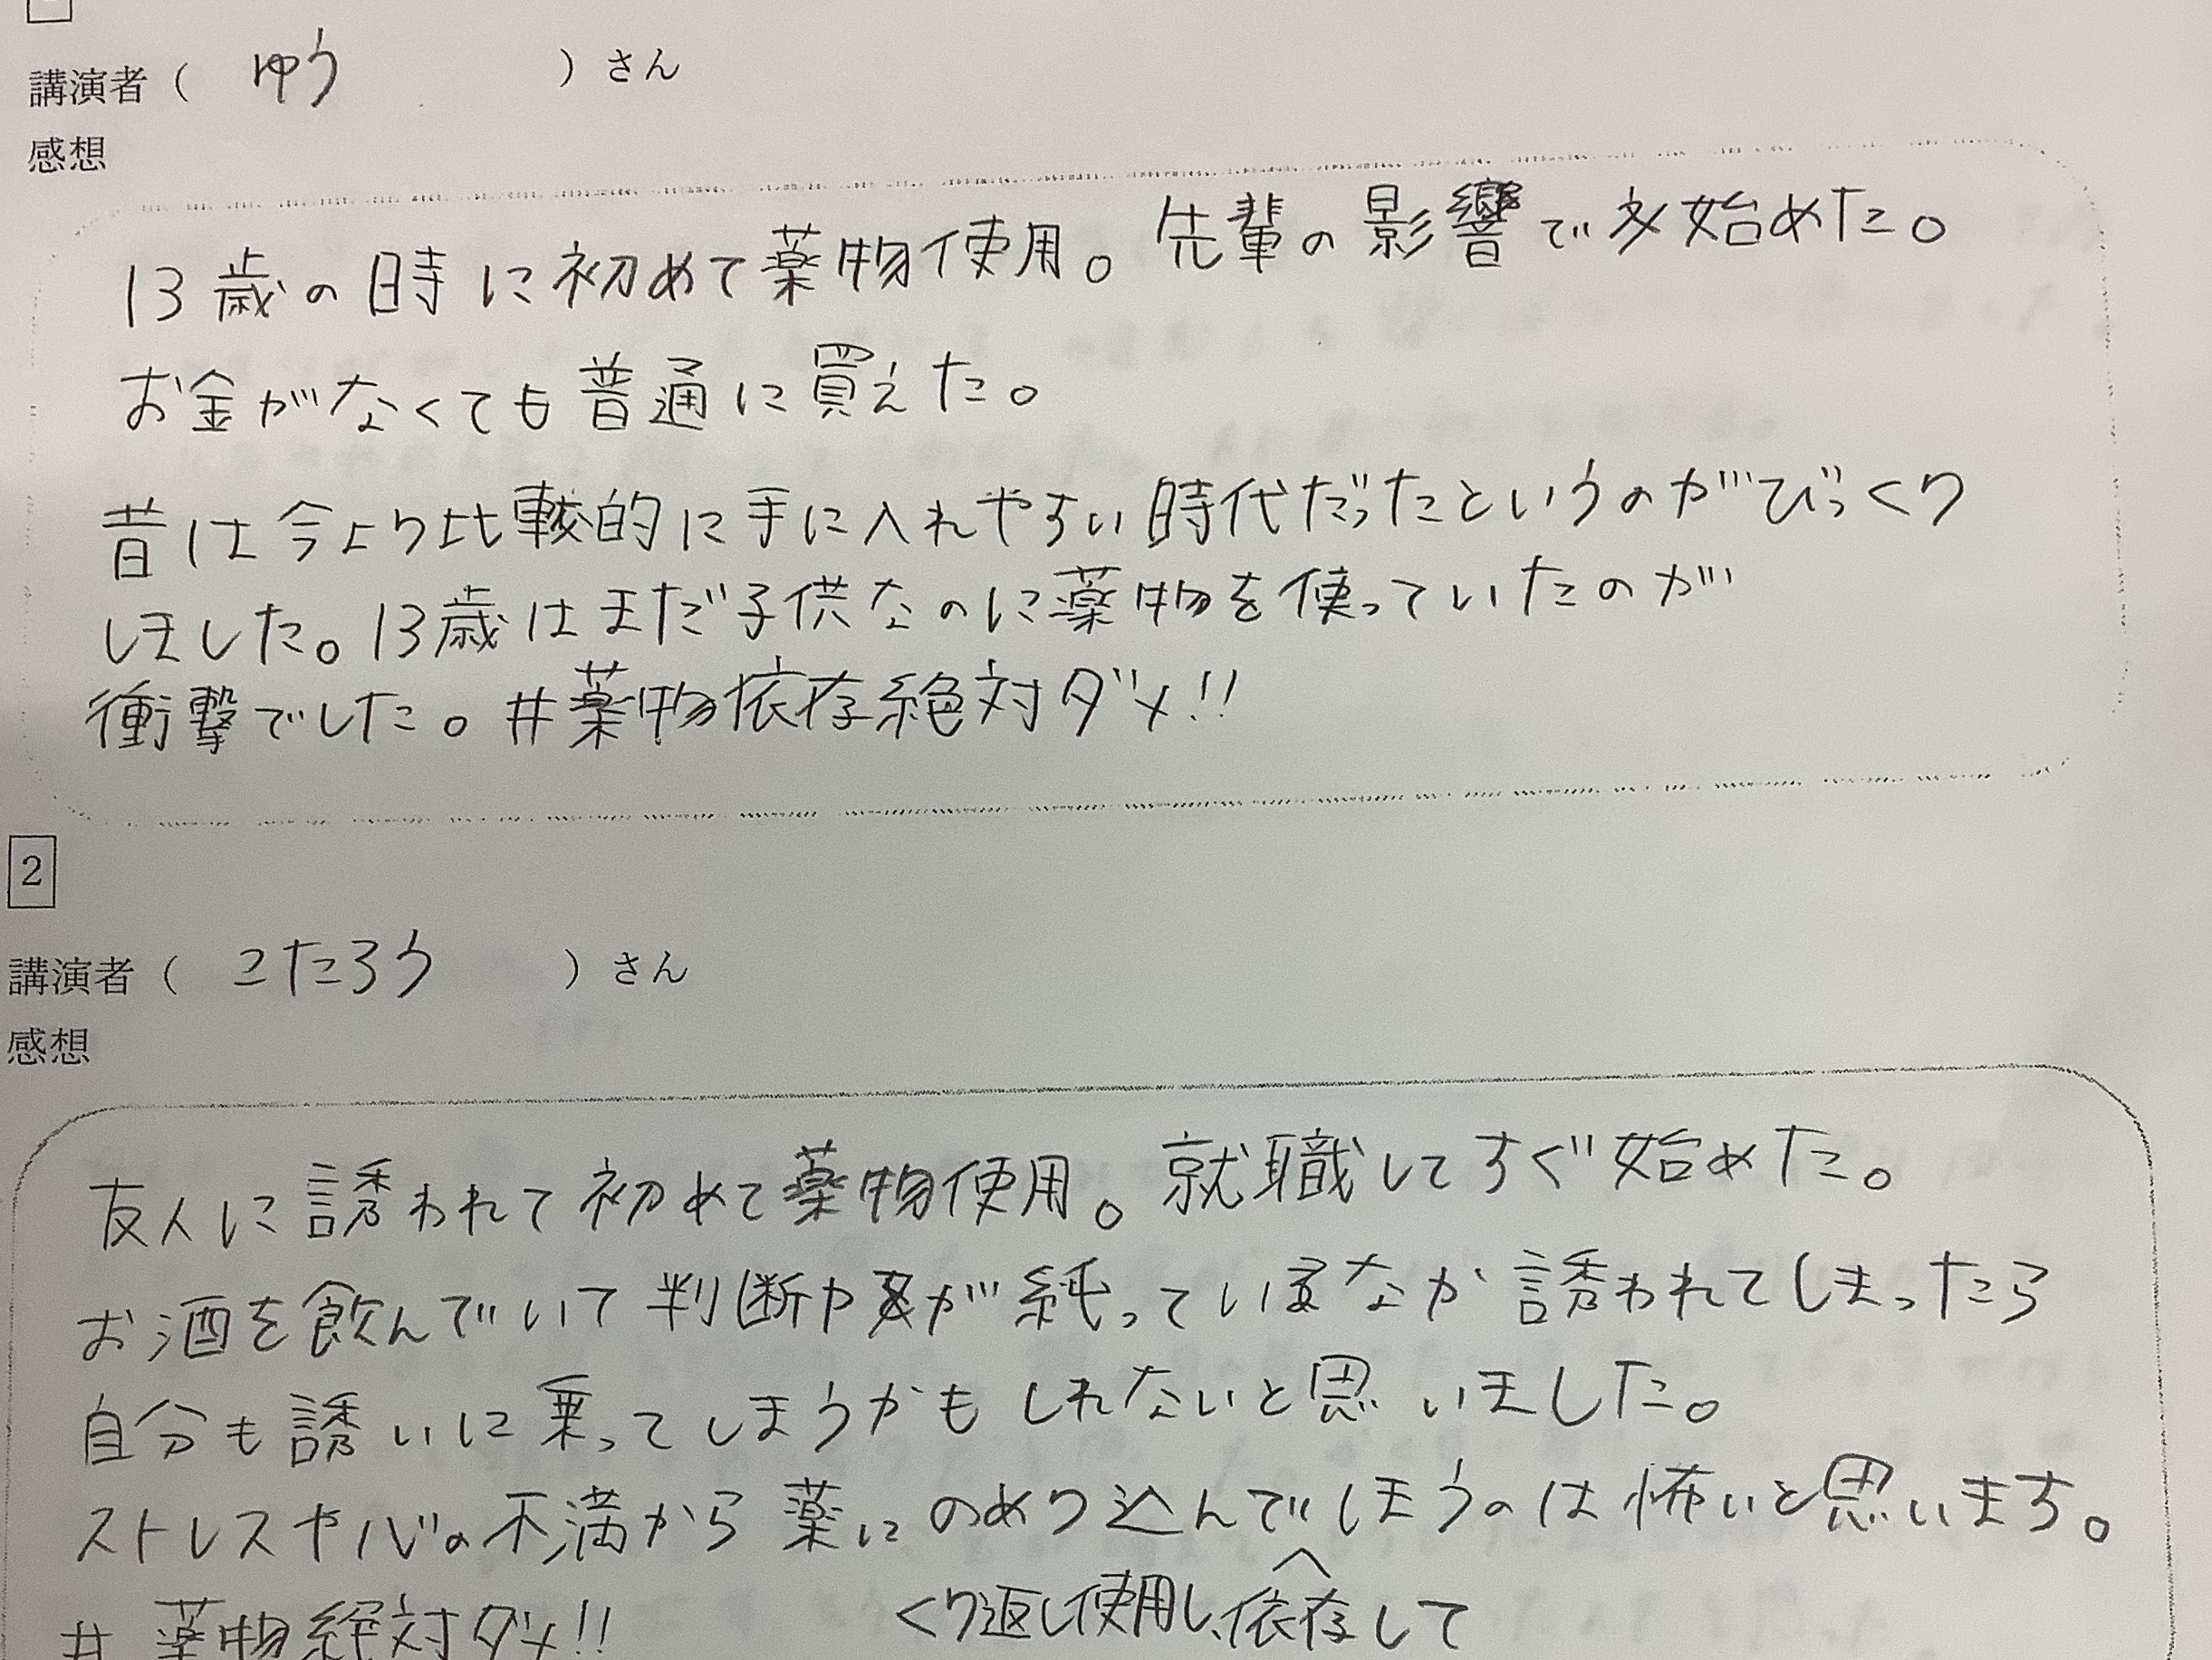 講演者（ ゆう ）さん
感想
13歳の時に初めて薬物使用。先輩の影響で始めた。
お金がなくても普通に買えた。
昔は今より比較的に手に入れやすい時代だったというのがびっくり
しました。13歳はまだ子供なのに薬物を使っていたのが
衝撃でした。#薬物依存絶対ダメ!!
2
講演者（ こたろう ）さん
感想
友人に誘われて初めて薬物使用。就職してすぐ始めた。
お酒を飲んでいて判断力が純っているなか誘われてしまったら
自分も誘いに乗ってしまうかもしれないと思いました。
ストレスや心の不満から薬にのめり込んでしまうのは怖いと思います。
くり返し使用し、依存して
# 薬物絶対ダメ!!